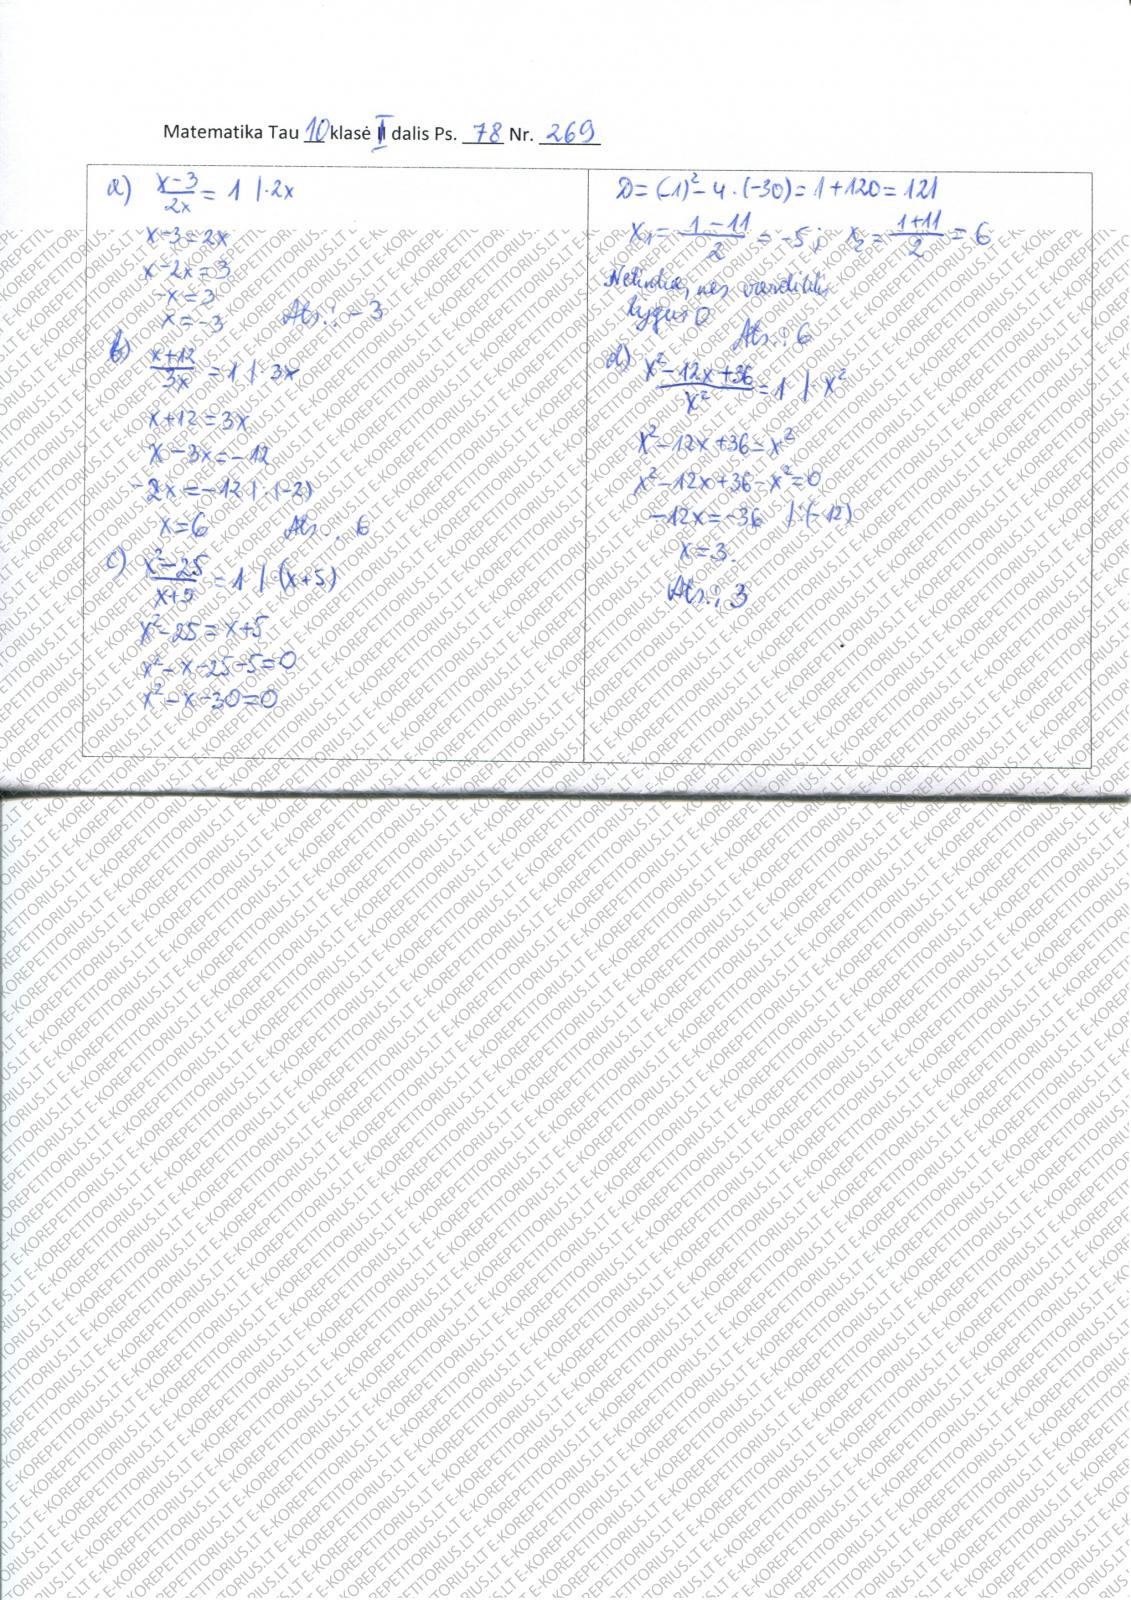 Matematika Tau 10 klasė I dalis Ps. 78 Nr. 269
a) x-3/2x = 1 |·2x
x-3=2x
x-2x=3
-x=3
x=-3 Ats.: -3
b) x+12/3x = 1 |·3x
x+12=3x
x-3x=-12
-2x=-12 |:(-2)
x=6 Ats.: 6
c) x²-25/x+5 = 1 |·(x+5)
x²-25=x+5
x²-x-25-5=0
x²-x-30=0
D=(-1)²-4·(-30)=1+120=121
x₁= 1-11/2 = -5; x₂= 1+11/2 = 6
Netinka, nes vardiklis
lygus 0
Ats.: 6
d) x²-12x+36/x² = 1 |·x²
x²-12x+36=x²
x²-12x+36-x²=0
-12x=-36 |:(-12)
x=3.
Ats.: 3
E-KOREPETITORIUS.LT